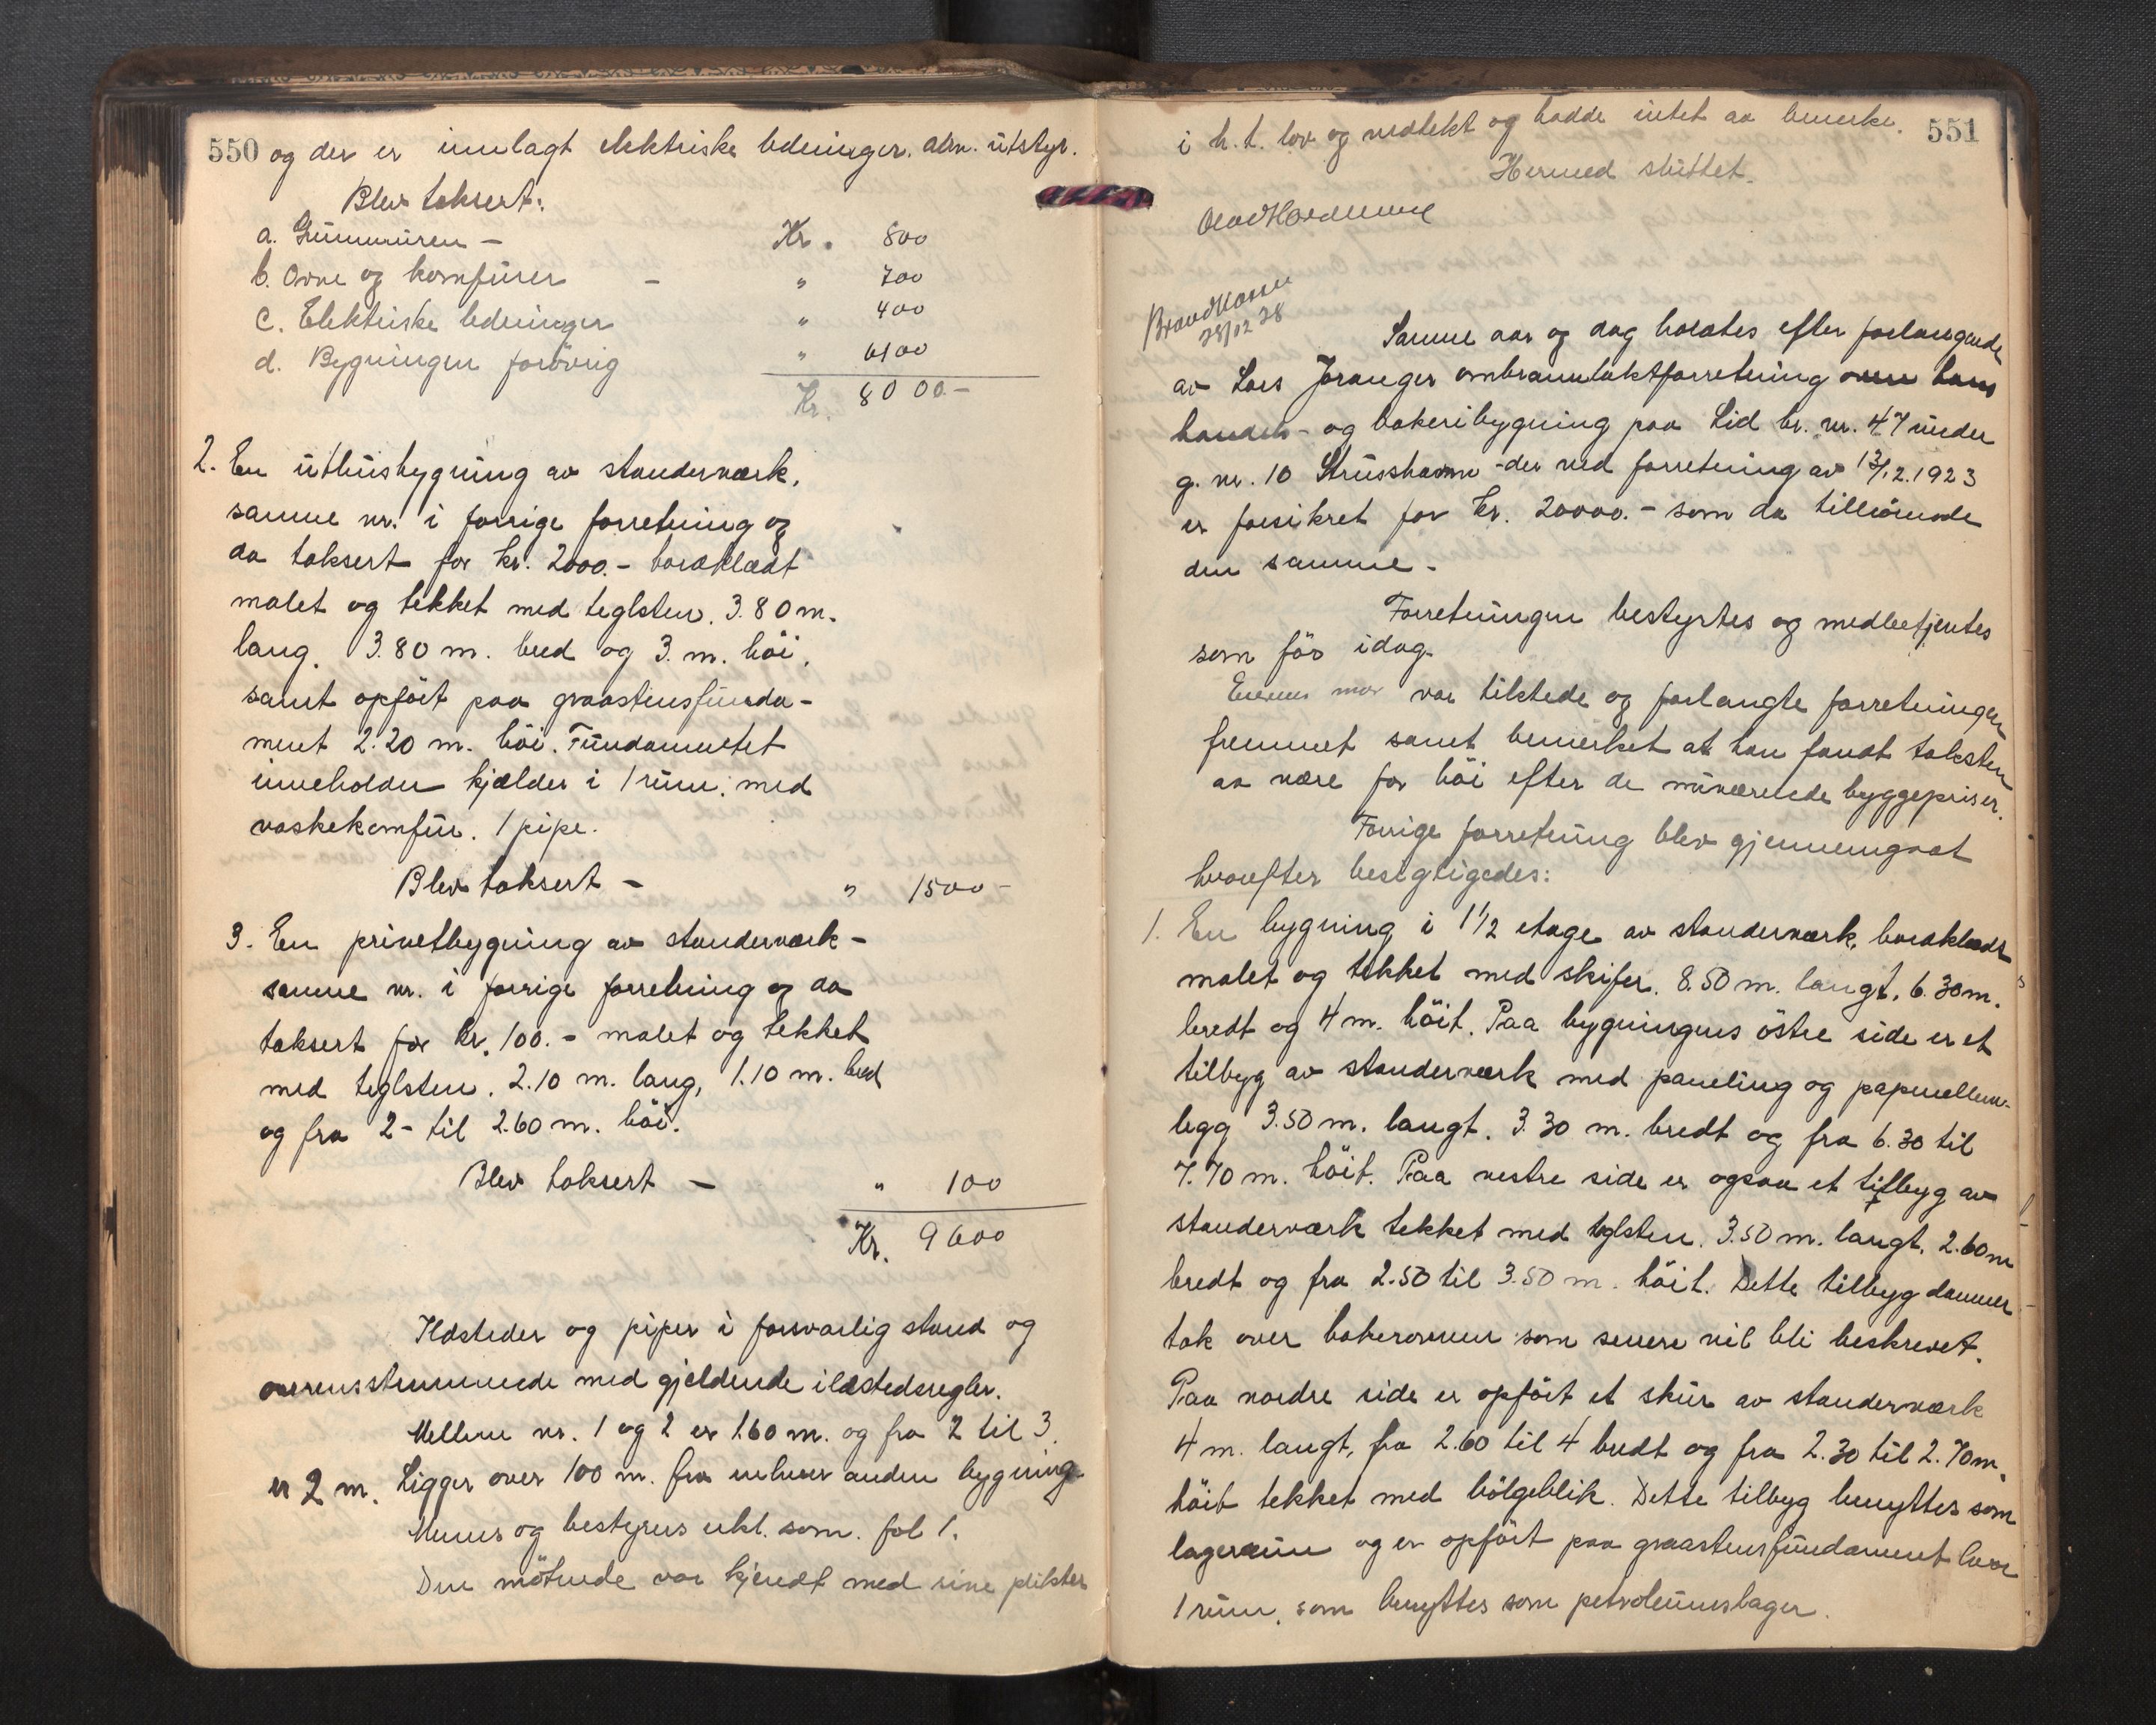 550 og der er innlagt elektriske ledninger. alm. utstyr.
Blev taksert:
a. Grunnmuren - Kr. 800
b. Ovne og komfürer - " 700
c. Elektriske ledninger " 400
d. Bygningen forövrig " 6100
Kr. 8000.-
2. En üthüsbygning av standerværk.
samme nr. i forrige forretning og
da taksert for kr. 2000.- bordklædt
malet og tekket med teglsten. 3.80 m.
lang. 3.80 m. bred og 3. m. höi,
samt opfört paa graastensfunda-
ment 2.20 m. höi. Fündamentet
inneholder kjælder i 1 rüm. med
vaskekomfür. 1 pipe.
Blev taksert - " 1500 -
3. En privetbygning av standerværk -
samme nr. i forrige forretning og da
taksert for kr. 100.- malet og tekket
med teglsten. 2.10 m. lang, 1.10 m. bred
og fra 2- til 2.60 m. höi.
Blev taksert - " 100
Kr. 9600
Ildsteder og piper i forsvarlig stand og
overensstemmende med gjeldende ildstedsregler.
Mellem nr. 1 og 2 er 1.60 m. og fra 2 til 3.
er 2 m. Ligger over 100 m. fra enhver anden bygning.
og bestyrers erkl. som. fol 1.
Den mötende var kjendt med sine plikter
551
i h. t. lov og vedtekt og hadde intet aa bemerke.
Hermed slüttet.
Brandkasse
28/12 28
Samme aar og dag holdtes efter forlangende
av Lars Joranger ombranntakstforretning over hans
handels- og bakeribygning paa Lid br. nr. 47 ünder
g. nr. 10 Strüsshamn - der ved forretning av 13/12.1923
er forsikret for kr. 20000.- som da tilhörende
den samme -
Forretningen bestyrtes og medbetjentes
som för idag.
var tilstede og forlangte forretningen
fremmet samt bemerket at han fandt taksten
aa være for höi efter de nüværende byggepriser.
Forrige forretning blev gjennemgaat
hvorefter besigtigedes:
1. En bygning i 1 1/2 etage av standerværk, bordklædt
malet og tekket med skifer. 8.50 m. langt. 6.30 m.
bredt og 4 m. höit. Paa bygningens östre side er et
tilbyg av standerværk med paneling og papmellem-
legg 3.50 m. langt. 3.30 m. bredt og fra 6.30 til
7.70 m. höit. Paa vestre side er ogsaa et tilbyg av
standerværk tekket med teglsten. 3.50 m. langt. 2.60 m
bredt og fra 2.50 til 3.50 m. höit. Dette tilbyg danner
tak over bakerovnen som senere vil bli beskrevet.
Paa nordre side er opfört et skür av standerværk
4 m. langt, fra 2.60 til 4 bredt og fra 2.30 til 2.70 m.
höit tekket med bölgeblik. Dette tilbyg benyttes som
lagerrüm og er opfört paa graastensfündament hvor
1 rüm, som benyttes som petroleümslager.